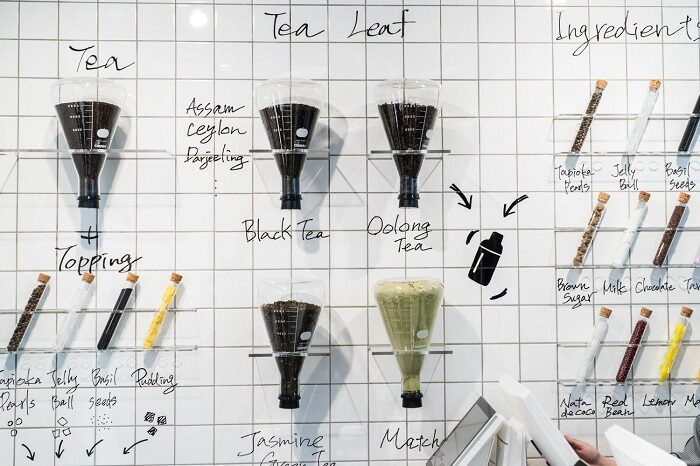 Tea
Topping
Tapioka
Pearls
Jelly
Ball
Basil
seeds
Pudding
Tea Leaf
Assam
Ceylon
Darjeeling
Black Tea
Oolong
Tea
Jasmine
Green Tea
Matcha
Ingredients
Tapioka
Pearls
Jelly
Ball
Basil
Seeds
Brown
Sugar
Milk
Chocolate
Nata
de coco
Red
Bean
Lemon